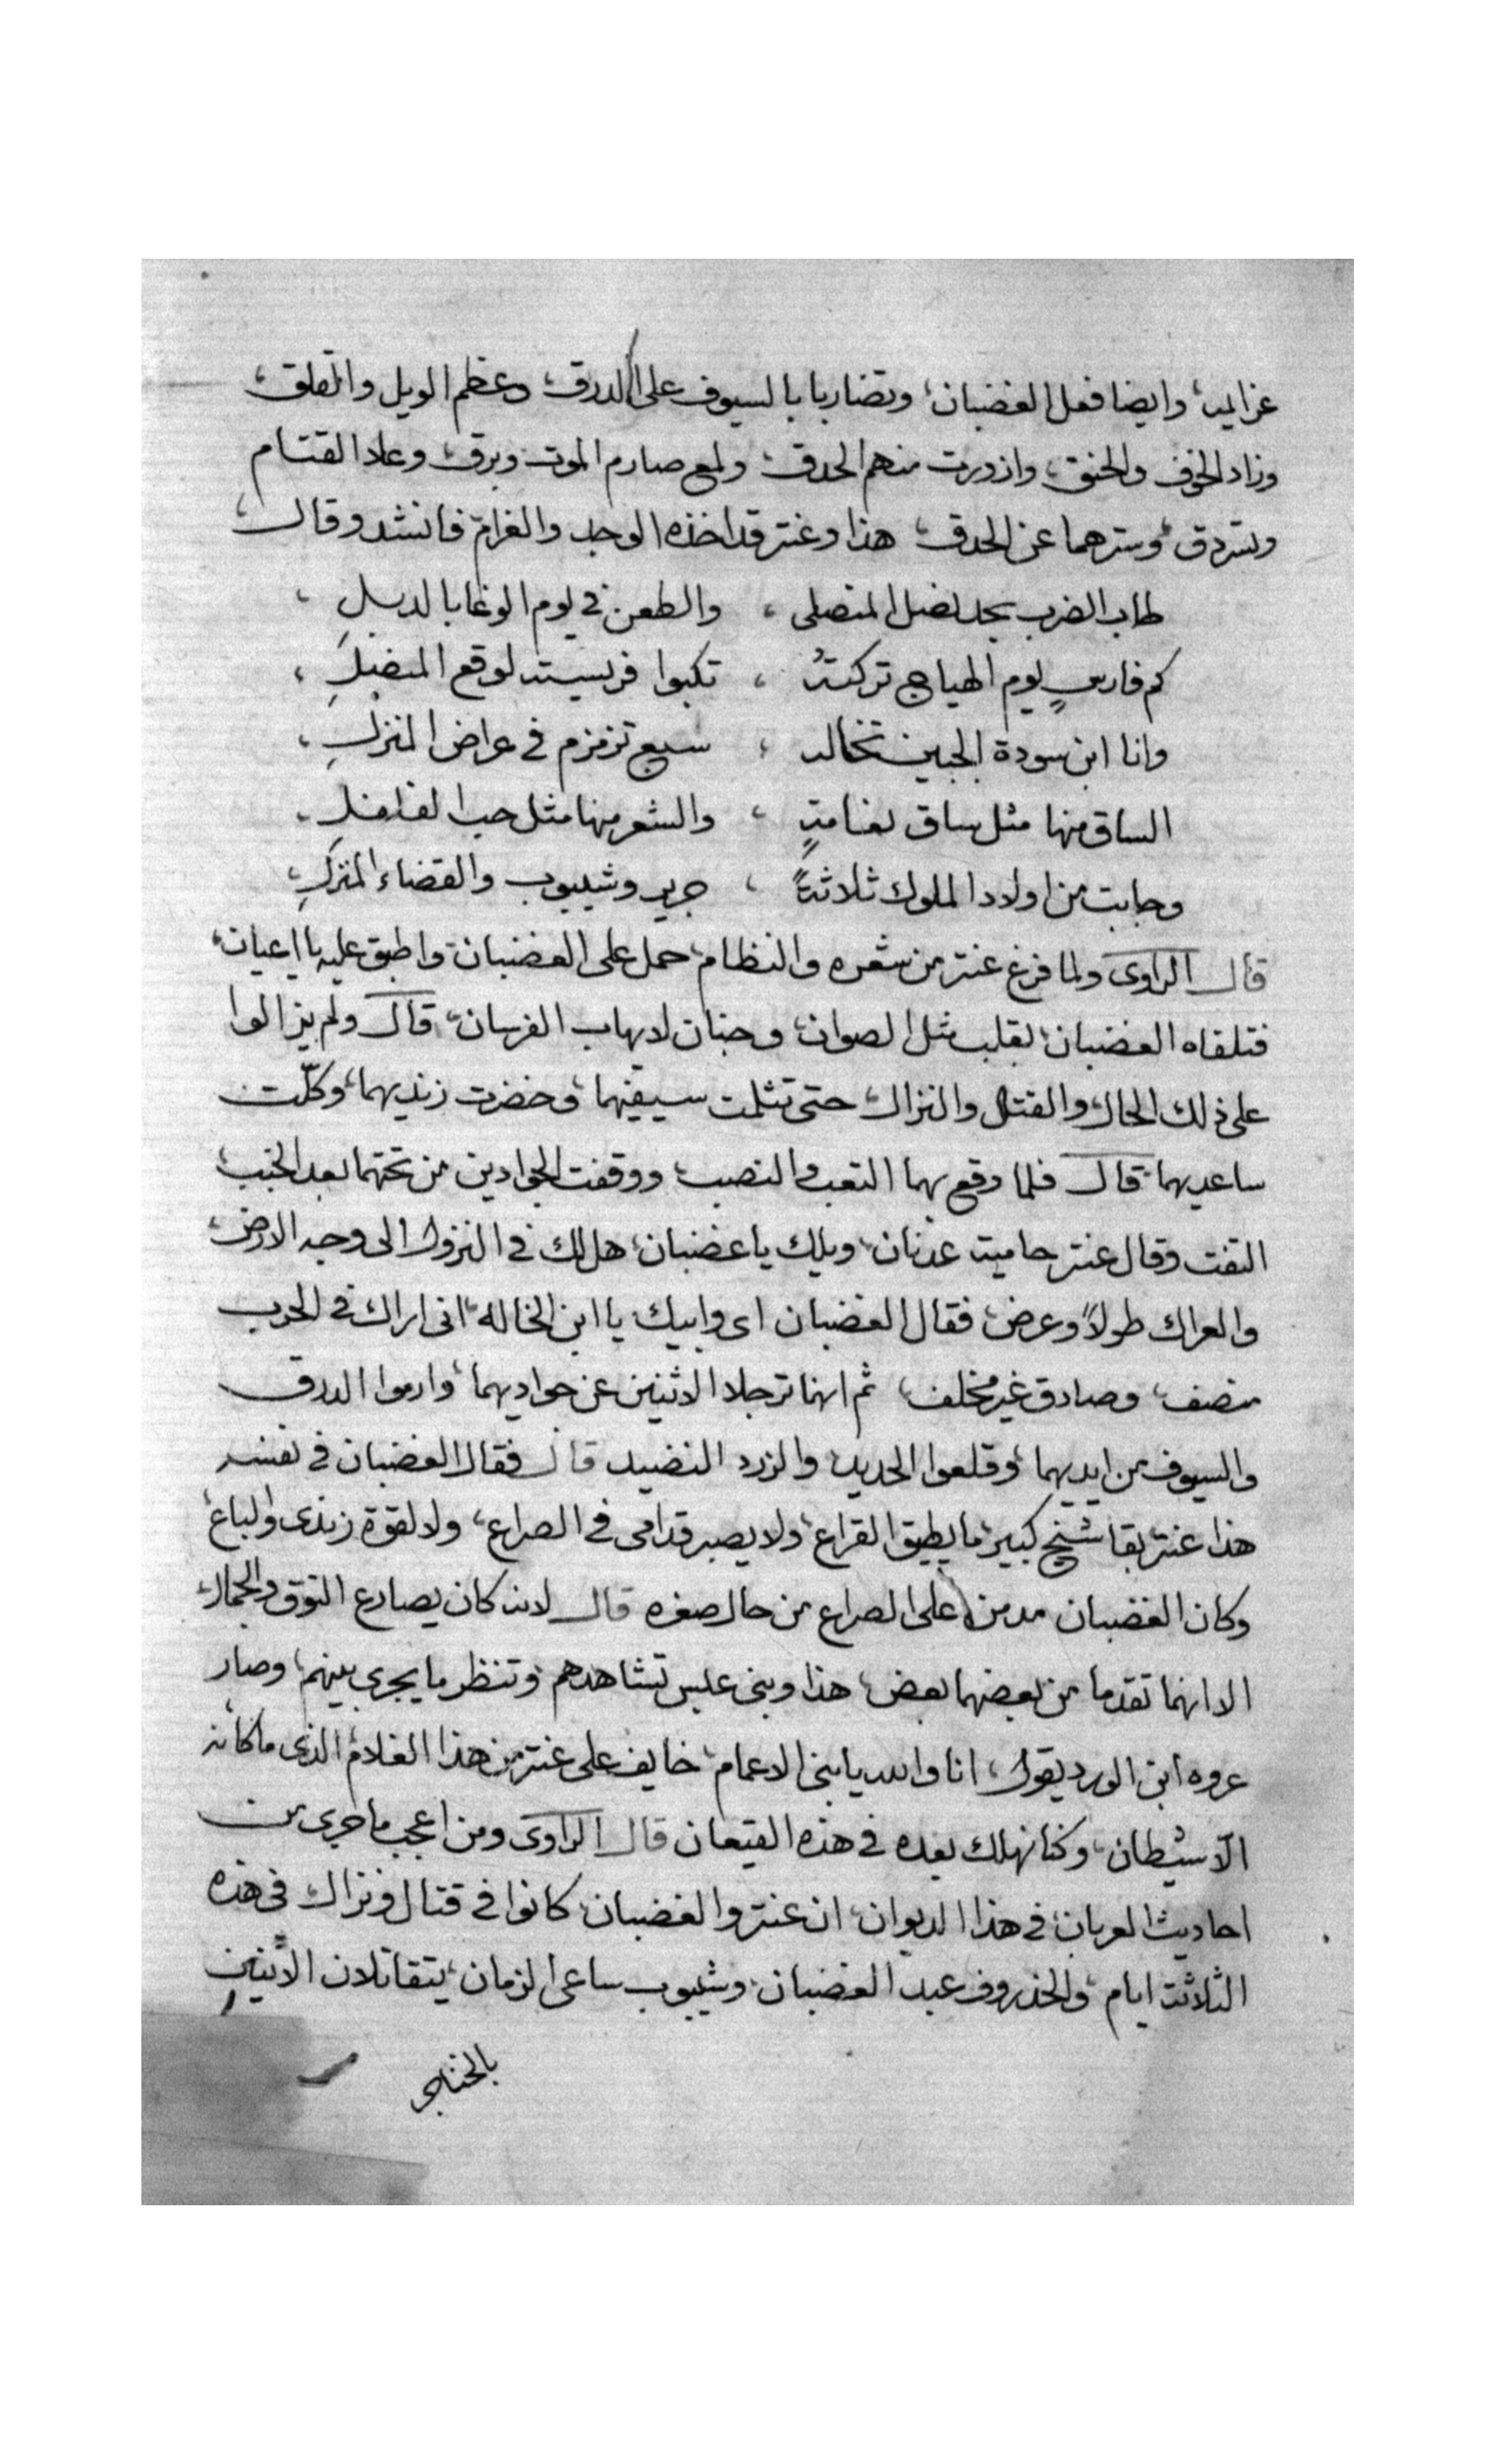 عزاليد، وايضا فعل الغضبان، وتضاربا بالسيوف على الدرق، وعظم الويل والقلق،
وزاد الخوف والحنق، وازورت منهم الحدق، ولمع صارم الموت وبرق، وعلا القتام
وتسردق، وسترهما عن الحدق، هذا وعنتر قد اخذه الوجد والغرام، فانشد وقال،
طاب الضرب بحد نصل المنصلى ، والطعن في يوم الوغا بالدبل ،
كم فارسٍ يوم الهياج تركتهُ ، تكبوا فريسته لوقع
وانا ابن سودة الجبين تخالد ، سبع تزمزم في عراض المنزلِ ،
الساق منها مثل ساق نعامةٍ ، والشعر منها مثل حب الفلفل ،
وجابت من اولاد الملوك ثلاثةً ، جرير وشيبوب والقضاء المنزلِ،
قال الراوى ولما فرغ عنتر من شعره والنظام، حمل على الغضبان، واطبق عليه يا اعيان،
فتلقاه الغضبان، بقلب مثل الصوان، وجنان لا يهاب الفرسان، قال ولم يزالوا
على ذلك الحال، والقتل والنزال، حتى تثلمت سيفيهما، وخضرت زنديهما، وكلّت
ساعديهما، قال فلما وقع بهما التعب والنصب، ووقفت الجوادين من تحتهما بعد الخبب،
التفت وقال عنتر حاميت عدنان، ويلك يا غضبان، هل لك في النزول الى وجه الارض،
والعراك طولاً وعرض، فقال الغضبان اى وابيك يا ابن الخاله، انى اراك في الحرب
منصف، وصادق غير مخلف، ثم انهما ترجلا الاثنين عن جواديهما، وارموا الدرق
والسيوف من ايديهما، وقلعوا الحديد، والزرد النضيد قال فقال الغضبان في نفسه
هذا عنتر بقا شيخ كبير، ما يطيق القراع، ولا يصبر قدامى في الصراع، ولا لقوة زندى والباع،
وكان الغضبان مدمن على الصراع من حال صغره قال لانه كان يصارع النوق والجمال،
الا انهما تقدما من بعضهما بعض، هذا وبنى عبس تشاهدهم، وتنظر ما يجرى بينهم، وصار
عروه ابن الورد يقول، انا والله يا بنى الاعمام، خايف على عنتر من هذا الغلام، الذى ما كانه
الّا شيطان، وكنا نهلك بعده في هذه القيعان قال الراوى ومن اعجب ما جرى من
احاديث العربان، في هذا الديوان، ان عنتر والغضبان، كانوا في قتال ونزال، في هذه
الثلاثة ايام، والخذروف عبد الغضبان، وشيبوب ساعى الزمان، يتقاتلان الاثنينِ
بالخناجر